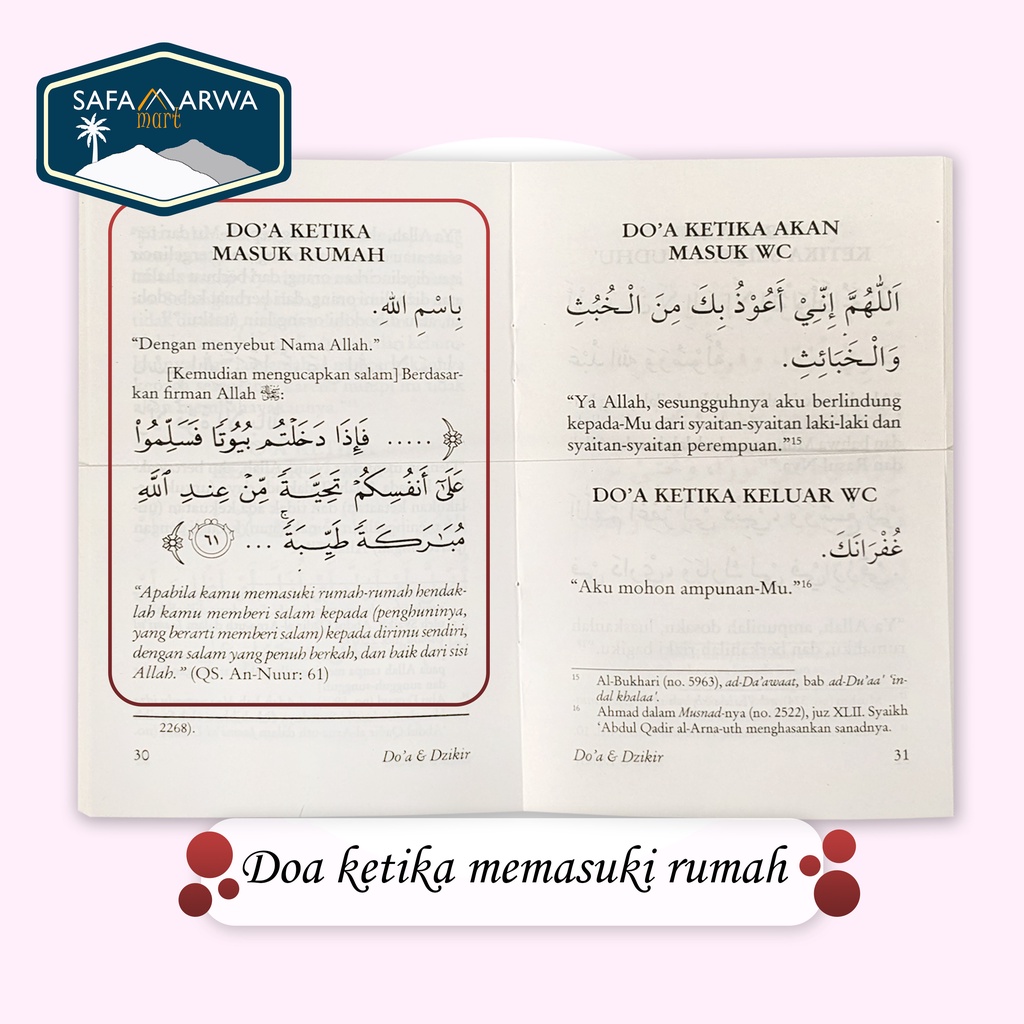 SAFA MARWA
mart
DO’A KETIKA
MASUK RUMAH
بِاسْمِ اللهِ.
“Dengan menyebut Nama Allah.”
[Kemudian mengucapkan salam] Berdasar-
kan firman Allah ﷻ:
﴿ ..... فَإِذَا دَخَلْتُم بُيُوتًا فَسَلِّمُوا۟
عَلَىٰٓ أَنفُسِكُمْ تَحِيَّةً مِّنْ عِندِ ٱللَّهِ
مُبَـٰرَكَةً طَيِّبَةً ۚ ... ٦١ ﴾
“Apabila kamu memasuki rumah-rumah hendak-
lah kamu memberi salam kepada (penghuninya,
yang berarti memberi salam) kepada dirimu sendiri,
dengan salam yang penuh berkah, dan baik dari sisi
Allah.” (QS. An-Nuur: 61)
2268).
30 Do’a & Dzikir
DO’A KETIKA AKAN
MASUK WC
اَللّٰهُمَّ إِنِّيْ أَعُوْذُ بِكَ مِنَ الْـخُبُثِ
وَالْـخَبَائِثِ.
“Ya Allah, sesungguhnya aku berlindung
kepada-Mu dari syaitan-syaitan laki-laki dan
syaitan-syaitan perempuan.”¹⁵
DO’A KETIKA KELUAR WC
غُفْرَانَكَ.
“Aku mohon ampunan-Mu.”¹⁶
¹⁵ Al-Bukhari (no. 5963), ad-Da’awaat, bab ad-Du’aa’ ‘in-
dal khalaa’.
¹⁶ Ahmad dalam Musnad-nya (no. 2522), juz XLII. Syaikh
‘Abdul Qadir al-Arna-uth menghasankan sanadnya.
Do’a & Dzikir 31
Doa ketika memasuki rumah